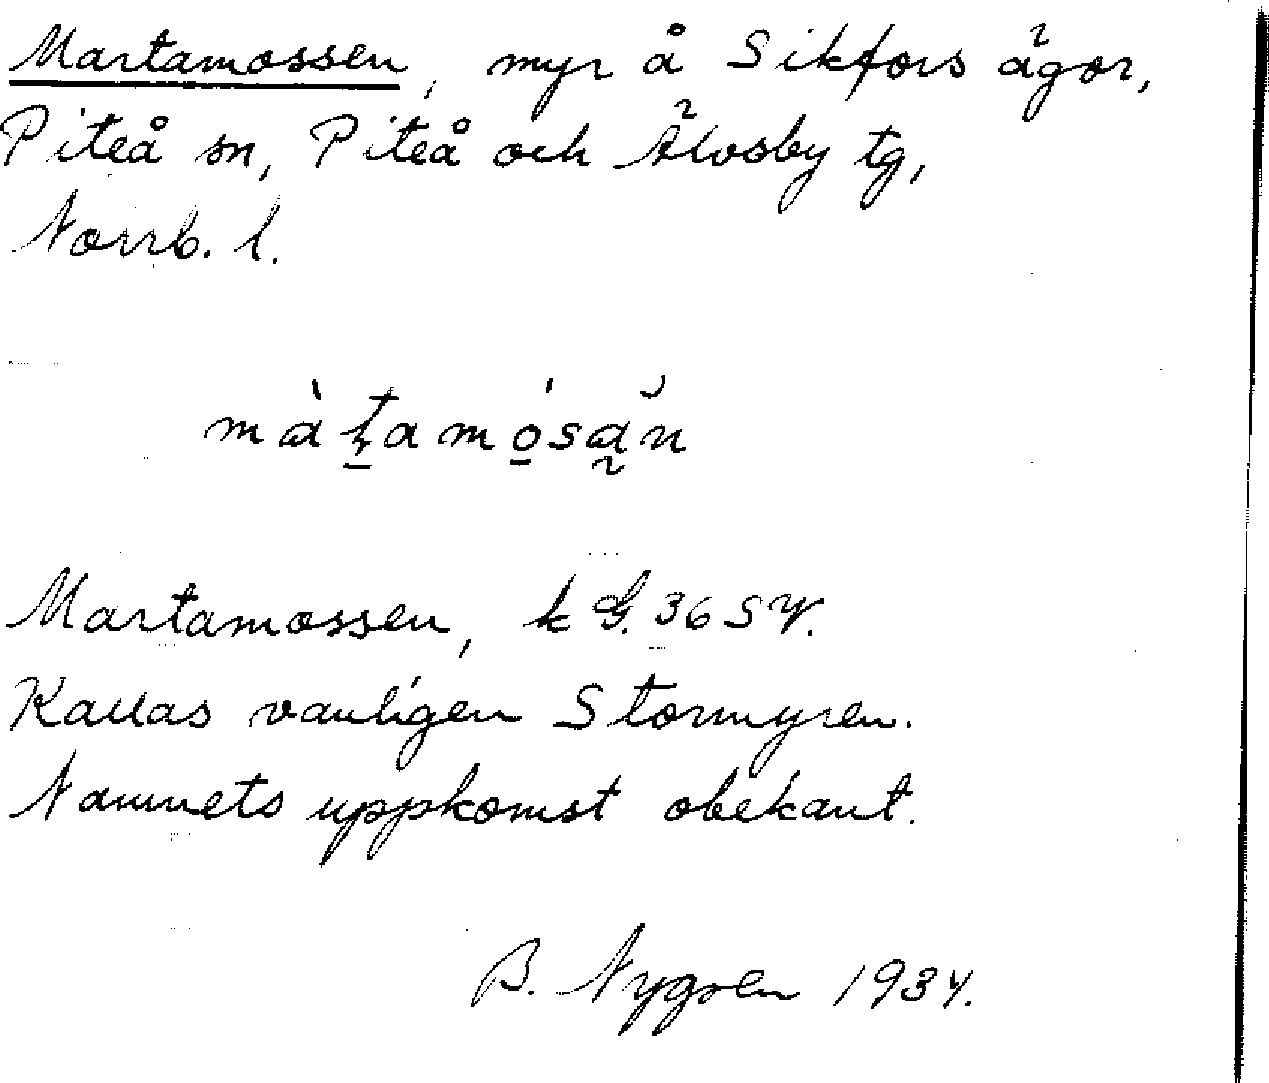 Martamossen, myr å Sikfors ägor,
Piteå sn, Piteå och Älvsby tg,
Norrb. l.
màtamósän
Martamossen, k G. 36 SV.
Kallas vanligen Stormyren.
Namnets uppkomst obekant.
B. Nygren 1934.